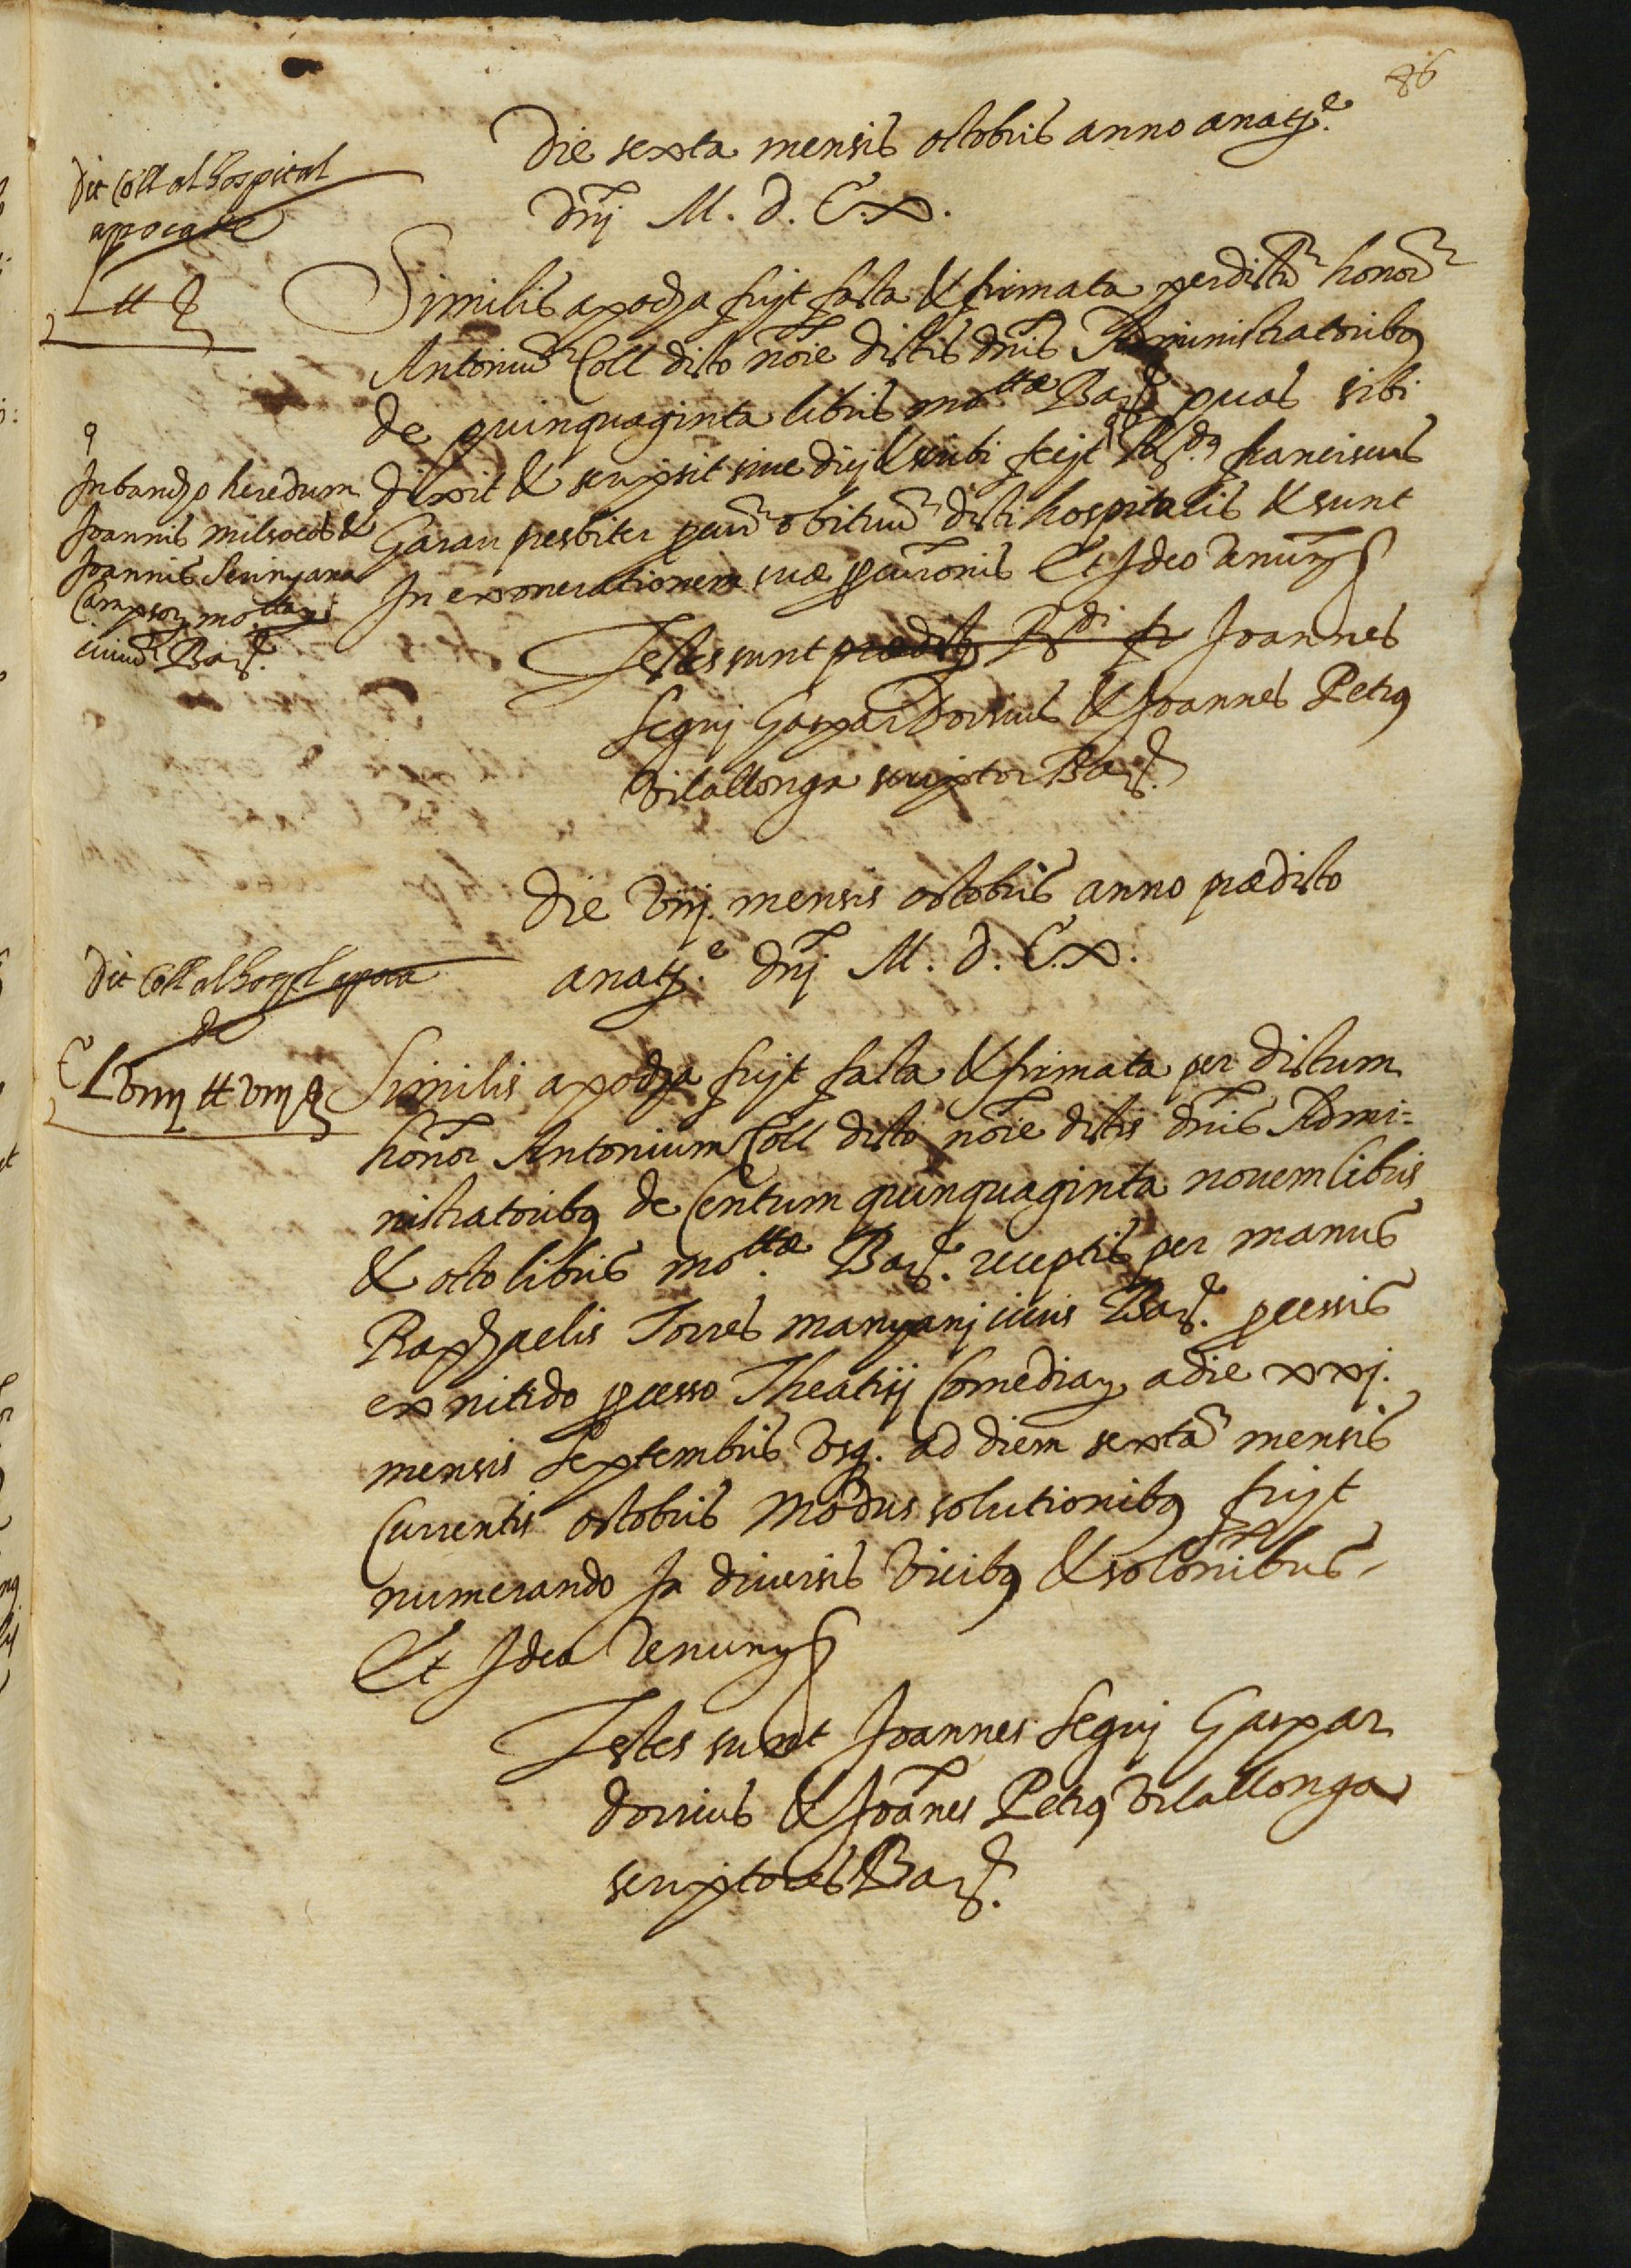 86
Die sexta mensis octobris anno a naty.e
dnj M. d. C. x.
Dit Coll al hospital
apoca de
L tt
Similis apocha fuyt facta & firmata per dictu honor
Antoniu Coll dicto noie dictis dnis Administratoribq
de quinquaginta libris motta Bar. quas sibi
dixit & scripsit sive dicj & scribi fecit Rdq franciscus
Garau presbiter pcur obituu dicti hospitalis & sunt
In exonerationem suæ pcuronis Et Ideo Renun
q
In bancho heredum
Joannis milsocos &
Joannis Serinyana
Campsor mottay
civiu Bar.
Testes sunt prædicty Rdi fr Joannes
Seguj Gaspar Dorrius & Joannes Petrq
Vilallonga scriptor Bar.
Die viij. mensis octobris anno prædicto
a naty.e dnj M. d. C. x.
Dit Coll al hospl apoca
de
C Lviiij tt viij
Similis apocha fuyt facta & firmata per dictum
honor Antonium Coll dicto noie dictis dnis Admi=
nistratoribq de Centum quinquaginta novem libris
& octo libris motta Bar. receptis per manus
Raphaelis Torres manyanj civis Bar. pcessis
ex nitido pcesso Theatrij Comediay a die xxj.
mensis septembris Vsq. ad diem sexta mensis
Currentis octobris Modus solutionibq fuyt
numerando In diversis Vicibq & solonibus
Et Ideo Renun
Testes sunt Joannes Seguj Gaspar
dorrius & Joanes Petrq Vilallonga
scriptores Bar.